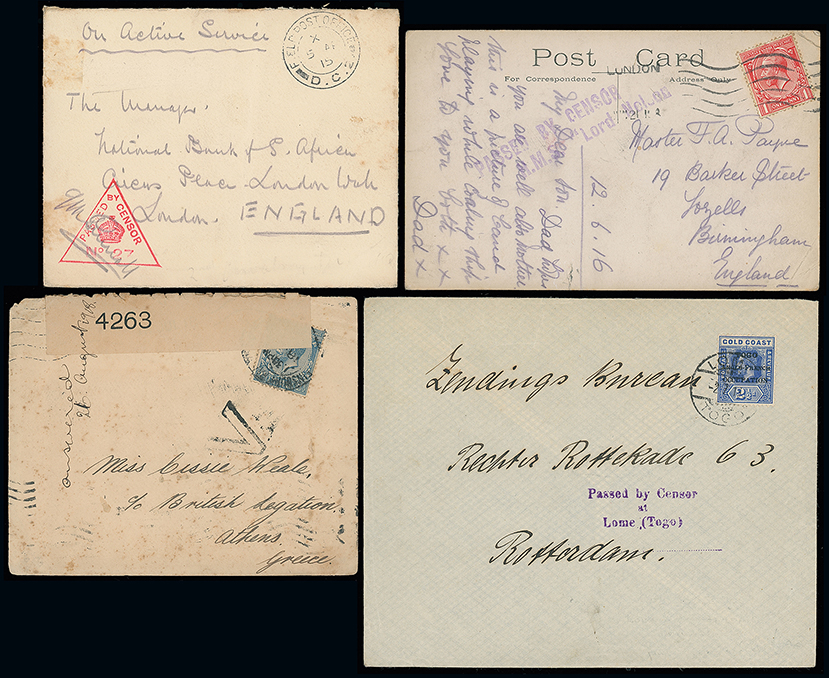 On Active Service
FIELD POST OFFICE
X
5
15
D.C.2
The Manager.
National Bank of S. Africa
Circus Place London Wall
London. ENGLAND
PASSED BY CENSOR
No 97
Post Card
For Correspondence
Address Only
LONDON
PASSED BY CENSOR
H.M.S. "Lord Nelson"
My Dear Son. Dad hopes
you are well also Mother
this is a picture of Band
playing while Coaling Ship
Love to you both x x
Dad x
12.6.16
Master F.A. Payne
19 Barker Street
Lozells
Birmingham
England
4263
answered
26 August 1918
Miss Cissie Weale,
c/o British Legation,
Athens
Greece.
GOLD COAST
TOGO
ANGLO-FRENCH
OCCUPATION
2½d
TOGO
Zendings Bureau
Rechter Rottekade 63.
Passed by Censor
at
Lome (Togo)
Rotterdam.